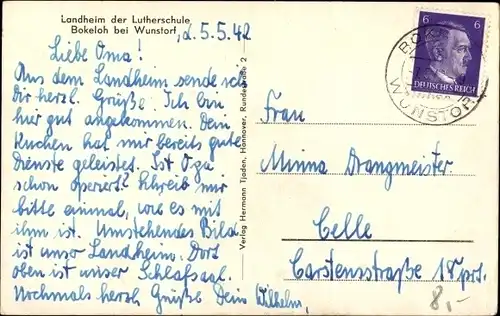 Landheim der Lutherschule
Bokeloh bei Wunstorf
d. 5.5.42
Liebe Oma!
Aus dem Landheim sende ich
Dir herzl. Grüße. Ich bin
hier gut angekommen. Dein
Kuchen hat mir bereits gute
Dienste geleistet. Ist Opa
schon operiert? Schreib mir
bitte einmal, wie es mit
ihm ist. Umstehendes Bild
ist unser Landheim. Dort
oben ist unser Schlafsaal.
Nochmals herzl. Grüße Dein Wilhelm.
Verlag Hermann Tjaden, Hannover, Rundestraße 2
6 6
DEUTSCHES REICH
WUNSTORF
Frau
Minna Drangmeister.
Celle
Carstensstraße 18 prt.
8,-